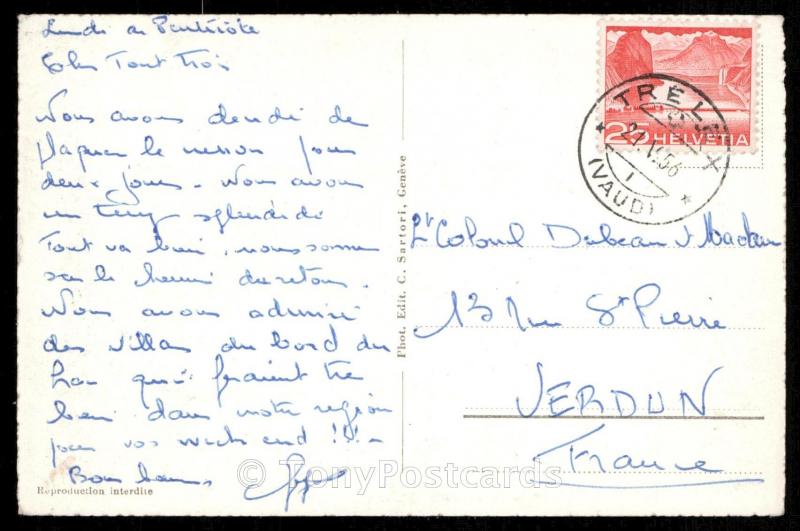 Lundi de Pentecôte
Tout trois
Nous avons décidé de
plaquer le pour
deux jours. Nous avons
un temps splendide
Tout va bien, nous sommes
sur le chemin du retour.
Nous avons admiré
des villas du bord du
Lac qui feraient très
bien dans notre région
pour vos week end !!! -
Bons baisers
Reproduction interdite
Phot. Edit. C. Sartori, Genève
TRÉLEX
21.V.56
1
(VAUD)
25 HELVETIA
Lt Colonel et Madame
13 Rue St Pierre
VERDUN
France
© TonyPostcards